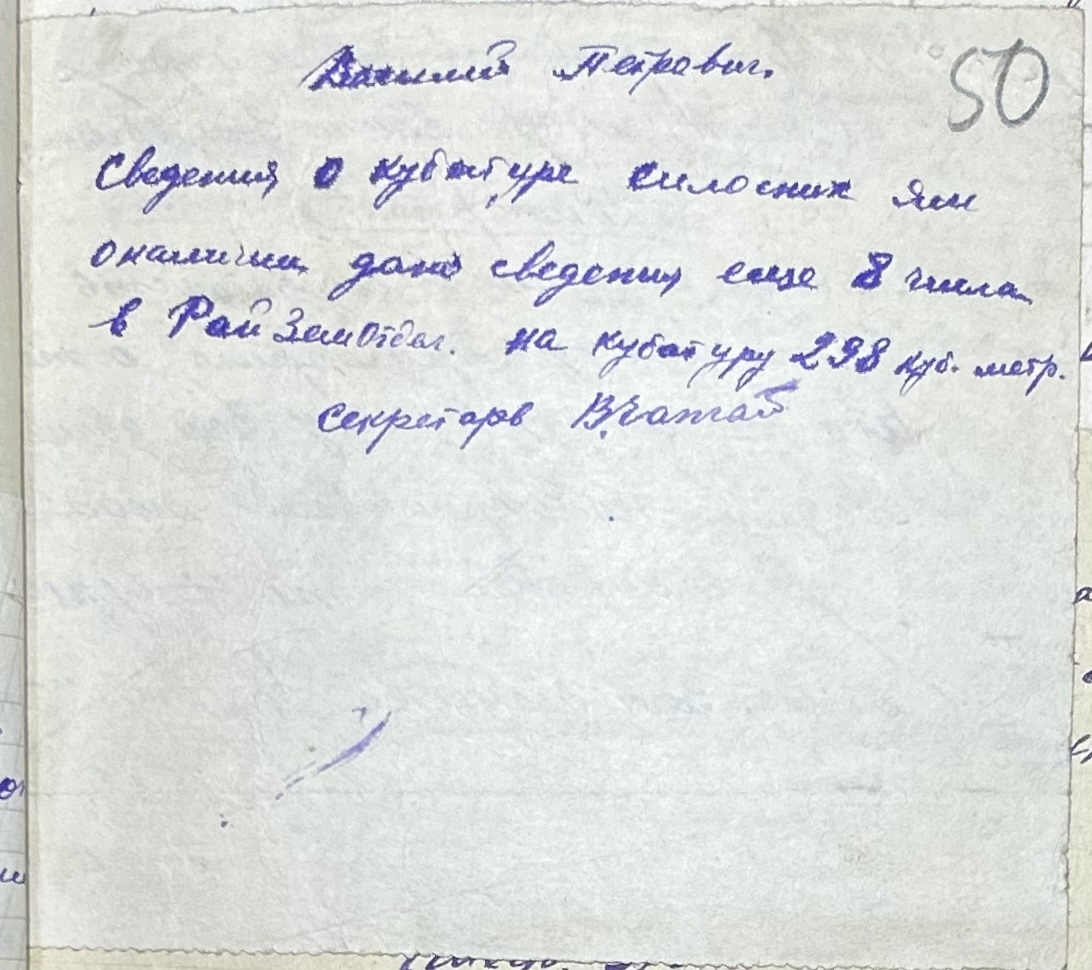 50
Василий Петрович.
Сведения о кубатуре силосних ям
о наличии дано сведения еще 8 числа
в РайЗемОтдел. на кубатуру 298 куб. метр.
секретарь